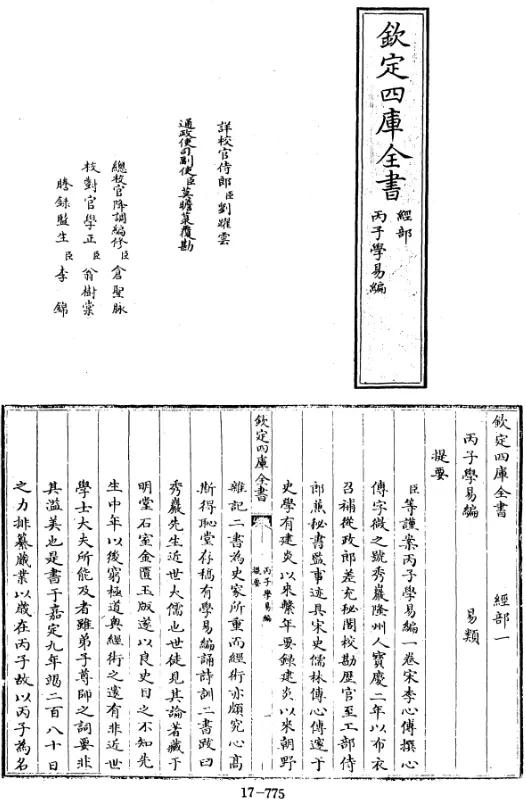 欽定四庫全書
經部
丙子學易編
詳校官侍郎臣劉躍雲
通政使司副使臣莫瞻菉覆勘
總校官降調編修臣倉聖脉
校對官學正臣翁樹棠
謄録監生臣李錦
欽定四庫全書 經部一
丙子學易編 易類
提要
臣等謹案丙子學易編一卷宋李心傳撰心
傳字微之號秀巖隆州人寶慶二年以布衣
召補從政郎差充秘閣校勘歴官至工部侍
郎兼秘書監事迹具宋史儒林傳心傳邃于
史學有建炎以來繫年要録建炎以來朝野
欽定四庫全書
丙子學易編
提要
雜記二書為史家所重而經術亦頗究心髙
斯得恥堂存稿有學易編誦詩訓二書跋曰
秀巖先生近世大儒也世徒見其論著藏于
明堂石室金匱玉版遂以良史目之不知先
生中年以後窮極道奥經術之邃有非近世
學士大夫所能及者雖弟子尊師之詞要非
其溢美也是書于嘉定九年竭二百八十日
之力排纂蕆業以歲在丙子故以丙子為名
17-775